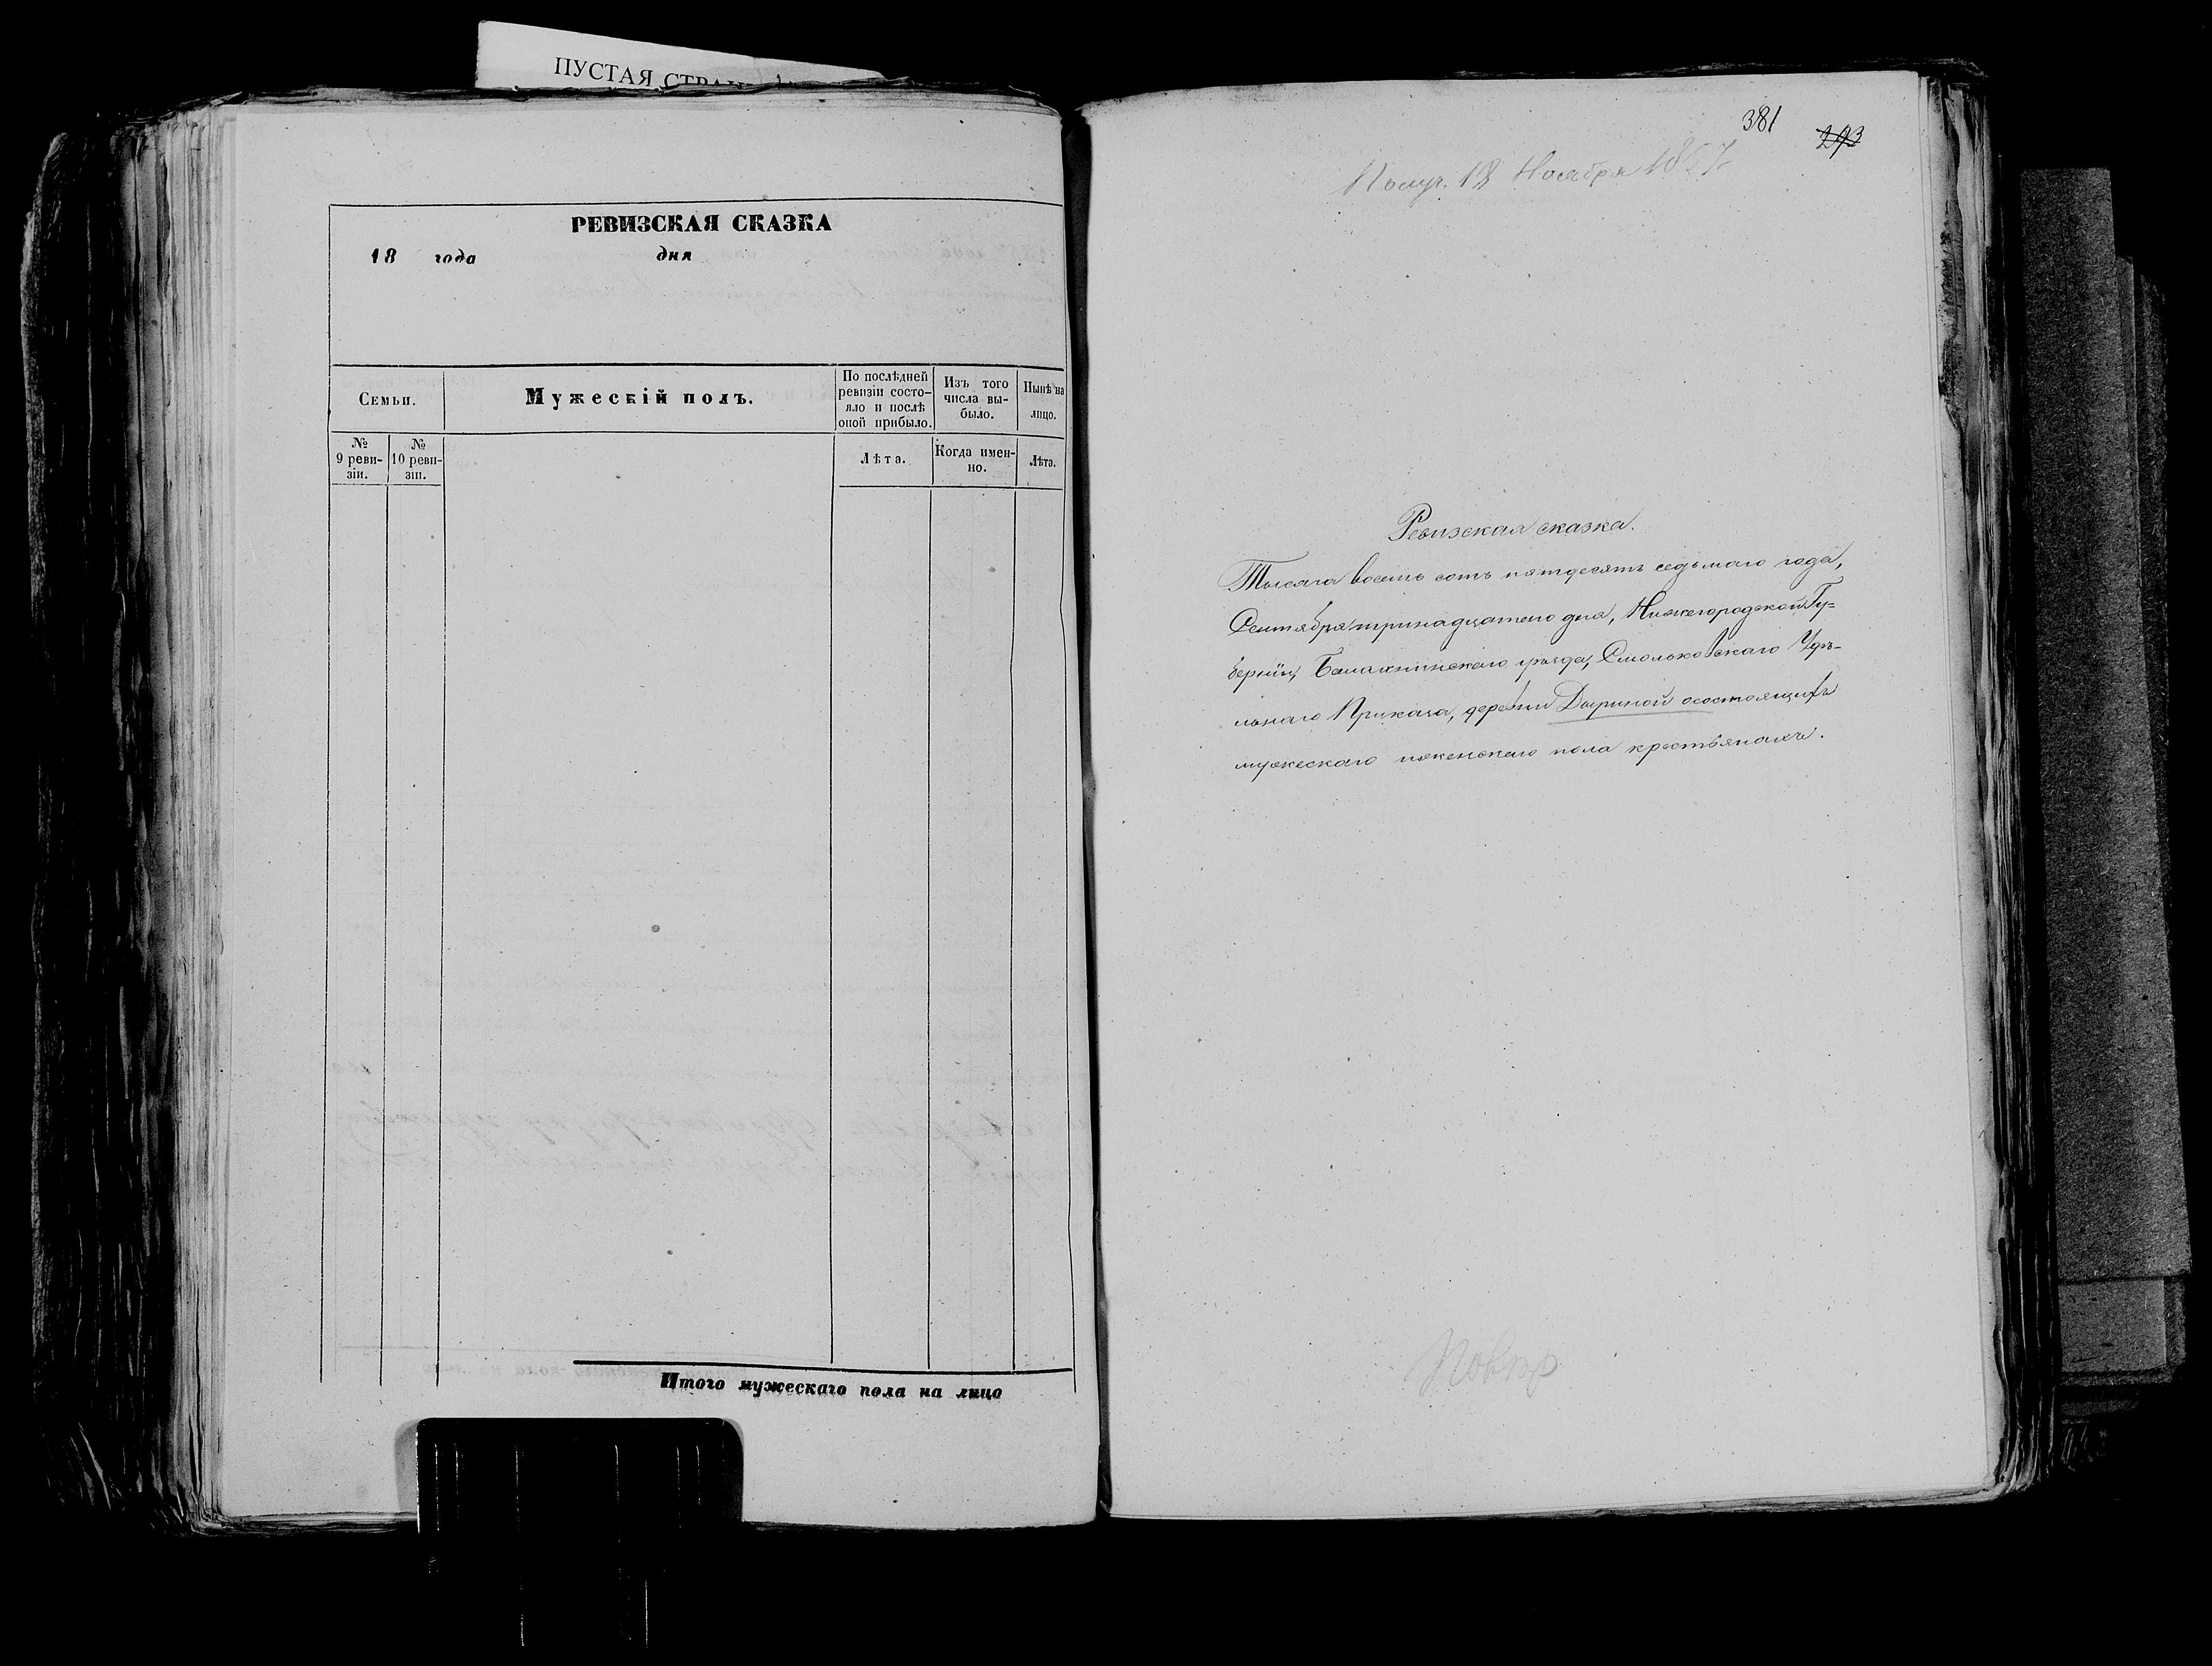 ПУСТАЯ СТРАН
РЕВИЗСКАЯ СКАЗКА
18 года дня
Семьи.
Мужескій полъ.
По послѣдней
ревизіи состо-
яло и послѣ
оной прибыло.
Изъ того
числа вы-
было.
Нынѣ на
лицо.
№
9 реви-
зіи.
№
10 реви-
зіи.
Лѣта.
Когда имен-
но.
Лѣта.
Итого мужескаго пола на лицо
381 293
Получ. 18 Ноября 1857
Ревизская сказка.
Тысяча восемь сотъ пятдесятъ седьмаго года,
Сентября тринадцатаго дня, Нижегородской Гу-
берніи, Балахнинскаго уѣзда, Смольковскаго Удѣ-
льнаго Приказа, деревни Дыриной осостоящихъ
мужескаго иженскаго пола крестьянахъ.